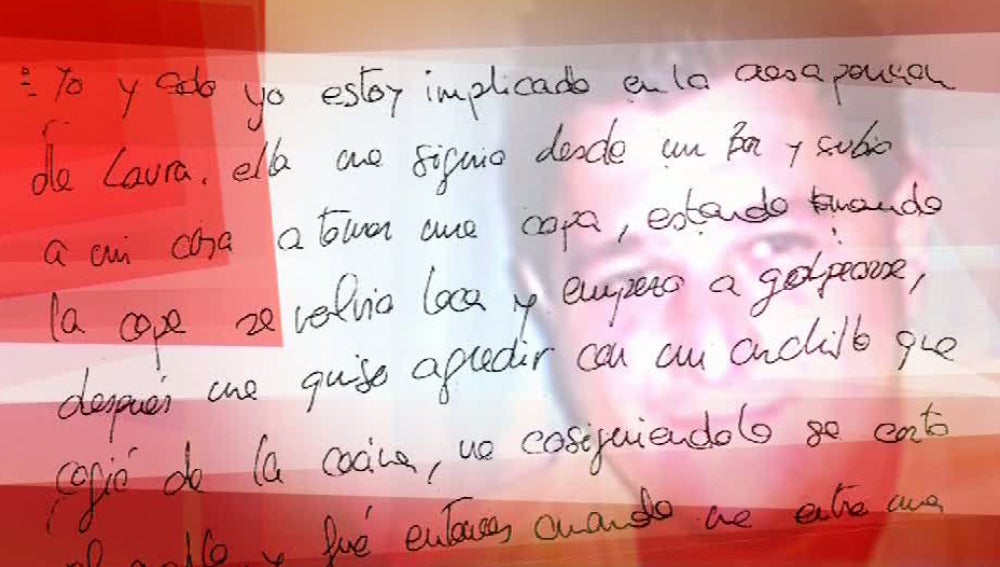 : Yo y solo yo estoy implicado en la desaparicion
de Laura. ella me siguio desde un Bar y subio
a mi casa a tomar una copa, estando tomando
la copa se volvio loca y empezo a golpearse,
después me quiso agredir con un cuchillo que
cogió de la cocina, no cosiguiendolo se corto
el cuello y fué entonces cuando me entro una